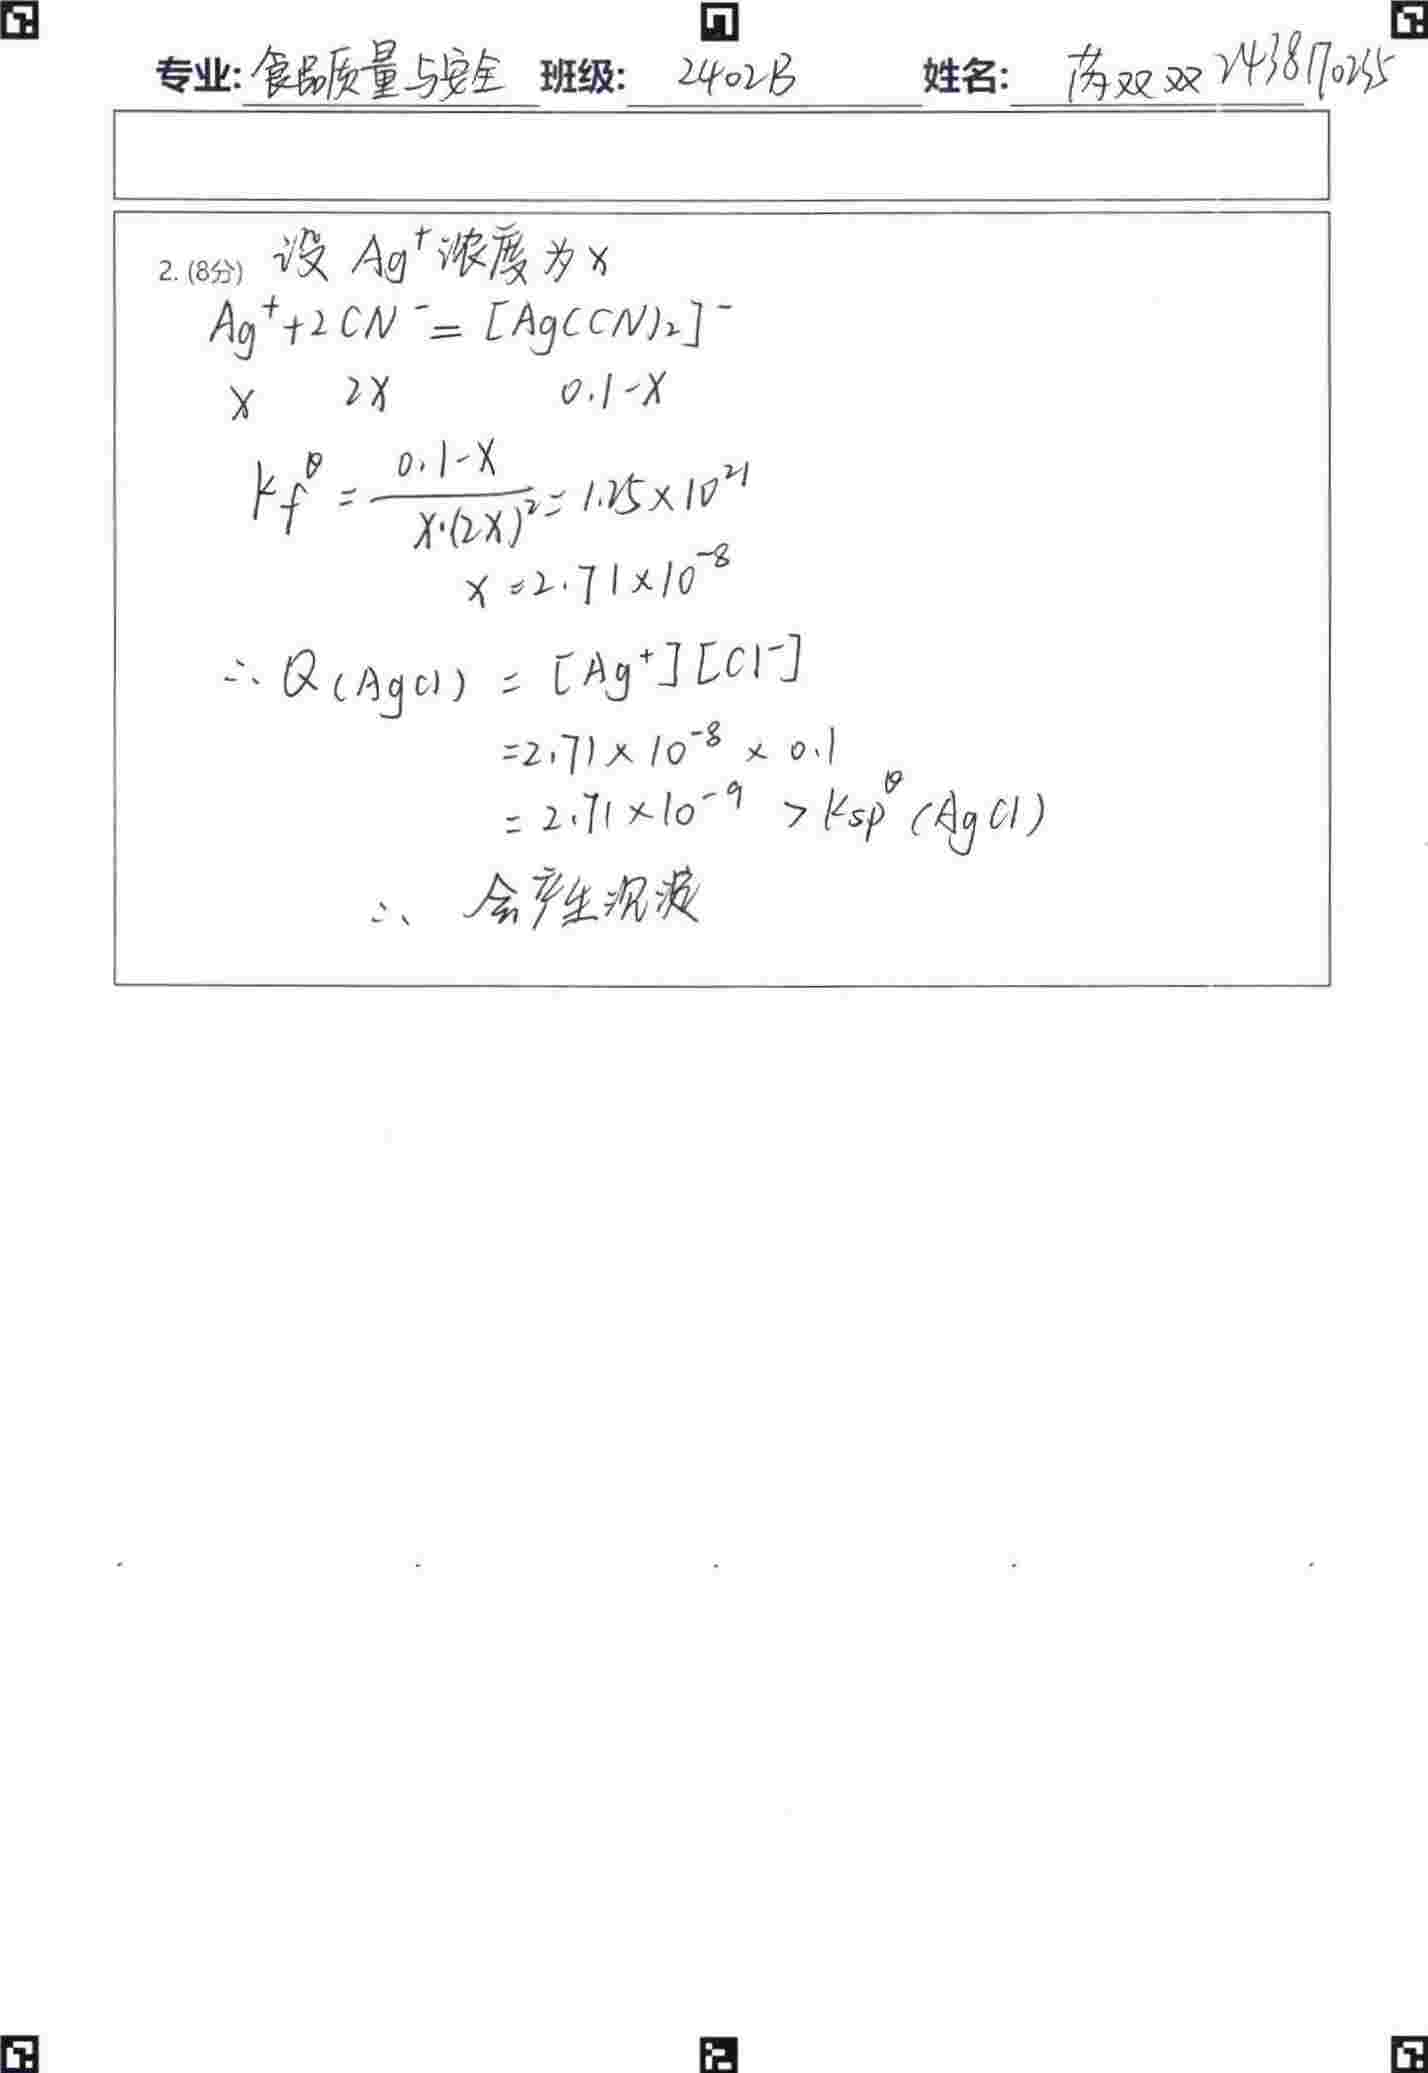 专业: 食品质量与安全 班级: 2402B 姓名: 芮双双 2438170255
2. (8分) 设 Ag⁺ 浓度为 x
Ag⁺ + 2CN⁻ = [Ag(CN)₂]⁻
x 2x 0.1-x
Kf^θ = (0.1-x)/(x·(2x)²) = 1.25×10²¹
x = 2.71×10⁻⁸
∴ Q(AgCl) = [Ag⁺][Cl⁻]
= 2.71×10⁻⁸ × 0.1
= 2.71×10⁻⁹ > Ksp^θ (AgCl)
∴ 会产生沉淀